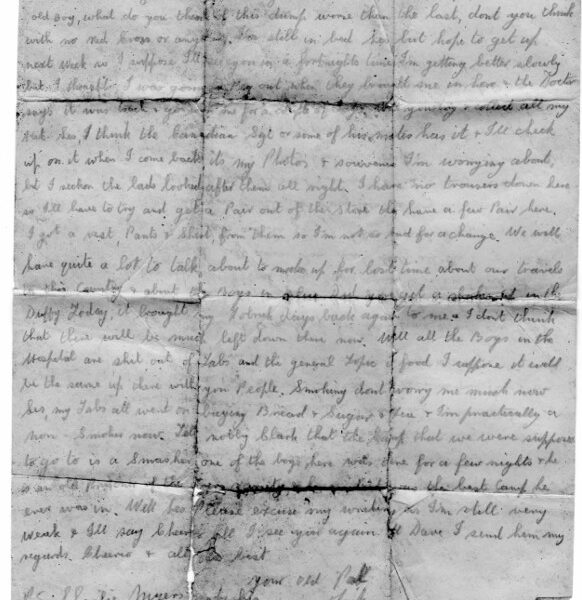 old Boy, what do you think of this dump worse than the last, dont you think
with no red Cross or anything, I'm still in bed but hope to get up
next week so I suppose I'll see you in a fortnights time, I'm getting better slowly
but I thought I was going to Peg out when they brought me in here & the Doctor
says it was touch & go with me for a
I think the Canadian Sgt or some of his mates has it & I'll check
up on it when I come back its my Photos & souvenirs I'm worying about,
but I reckon the lads looked after them all right. I have no trousers down here
so I'll have to try and get a Pair out of the store the have a few Pair here.
I got a vest, Pants & Shirt from them so I'm not so bad for a change. We will
have quite a lot to talk about to make up for lost time about our travels
in this Country & about the Boys in
Duffy Today, it brought my Lobruk days back again to me & I dont think
that there will be much left down there now. Well all the Boys in the
Hospital are shit out of Tabs and the general Topic is food I suppose it will
be the same up there with you People, Smoking dont worry me much now
Sis, my Tabs all went on buying Bread & Sugar & Tea & I'm practically a
non Smoker now. Tell notby Clark that the Camp that we were supposed
to go to is a Smasher, one of the boys here was there for a few nights & he
is an old the best Camp he
ever was in. Well Please excuse my writing as I'm still very
weak & I'll say Cheerio till I see you again Dave I send them my
regards. Cheerio & all the best
your old Pal
Myers